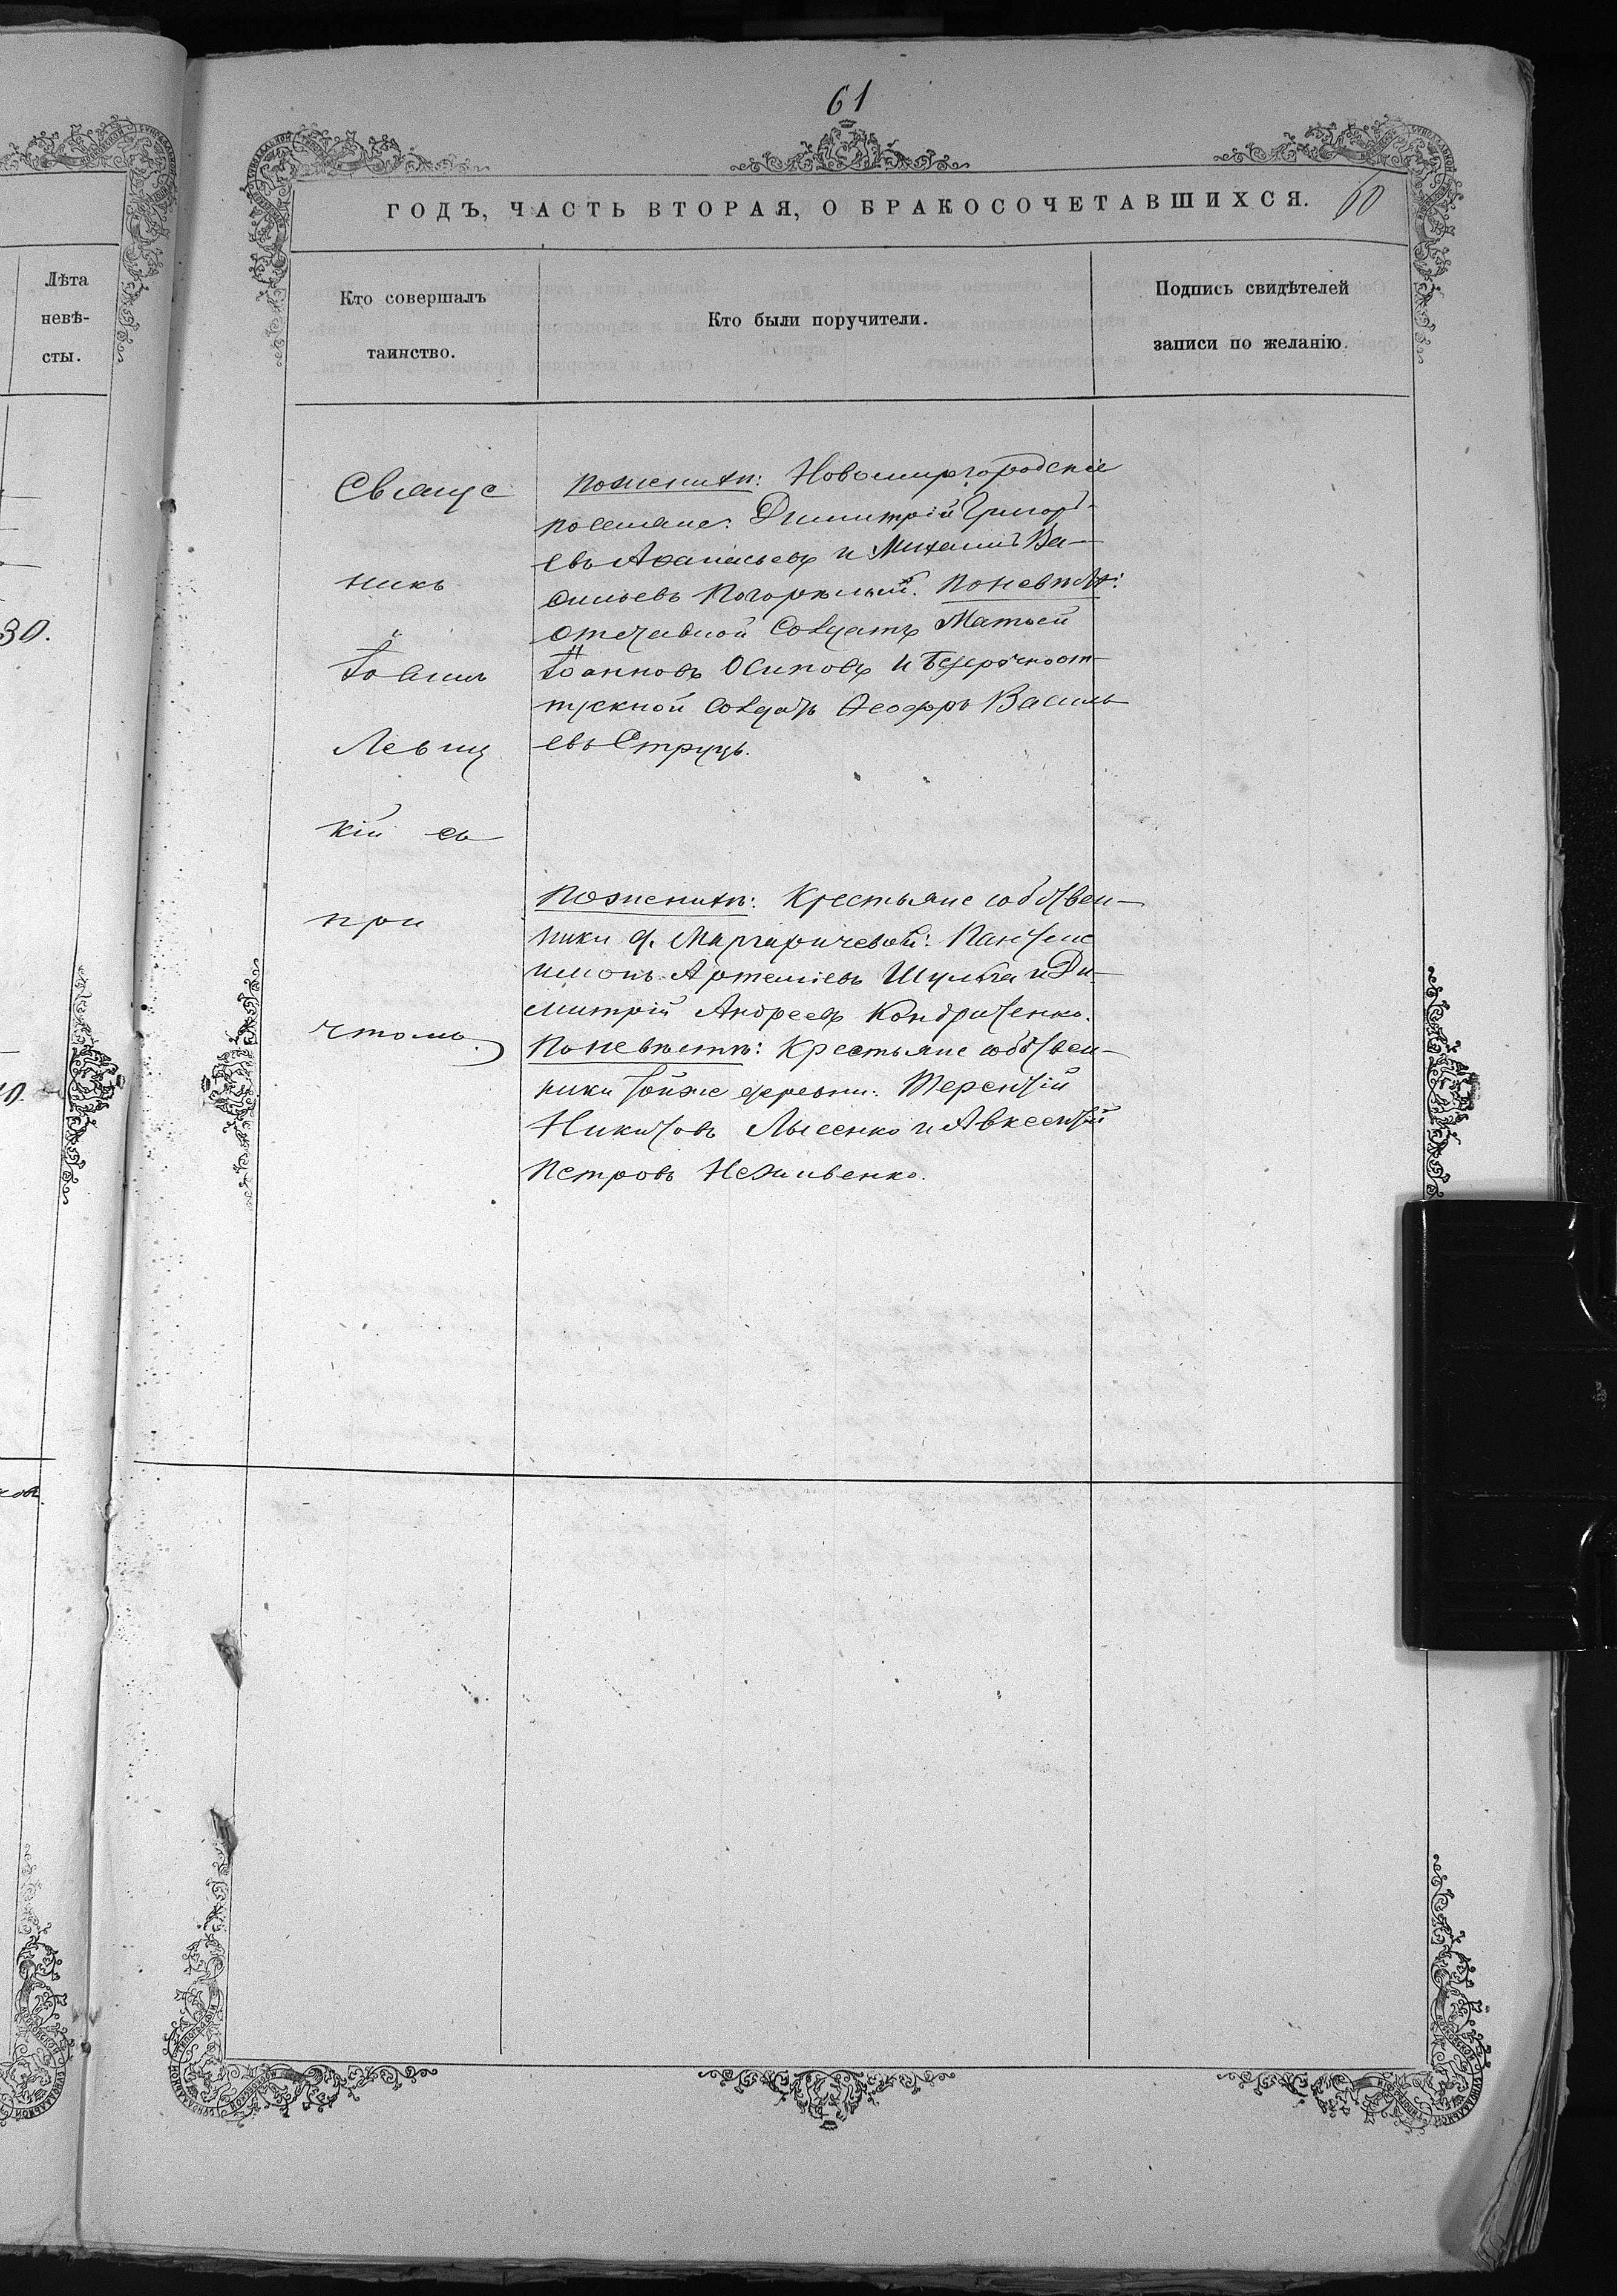 61
ГОДЪ, ЧАСТЬ ВТОРАЯ, О БРАКОСОЧЕТАВШИХСЯ.
60
Лѣта
невѣ-
сты.
30.
Кто совершалъ
таинство.
Кто были поручители.
Подпись свидѣтелей
записи по желанію.
Священ
никъ
Іоаннъ
Левиц
кій съ
при
чтомъ.
Поженихѣ: Новомиргородскіе
поселяне: Димитрій Григорь-
евъ Аѳанасьевъ и Михаилъ Ва-
сильевъ Погорѣлый. Поневѣстѣ:
отставной Солдатъ Матѳей
Іоанновъ Осиповъ и безсрочноот-
пускной Солдатъ Ѳеодоръ Василь
евъ Струць.
Поженихѣ: Крестьяне собствен-
ники д. Маргаричевой: Пантеле
имонъ Артеміевъ Шульга и Ди-
митрій Андреевъ Кондратенко.
Поневѣстѣ: Крестьяне собствен-
ники тойже деревни: Терентій
Никитовъ Лысенко и Авксентій
Петровъ Неживенко.